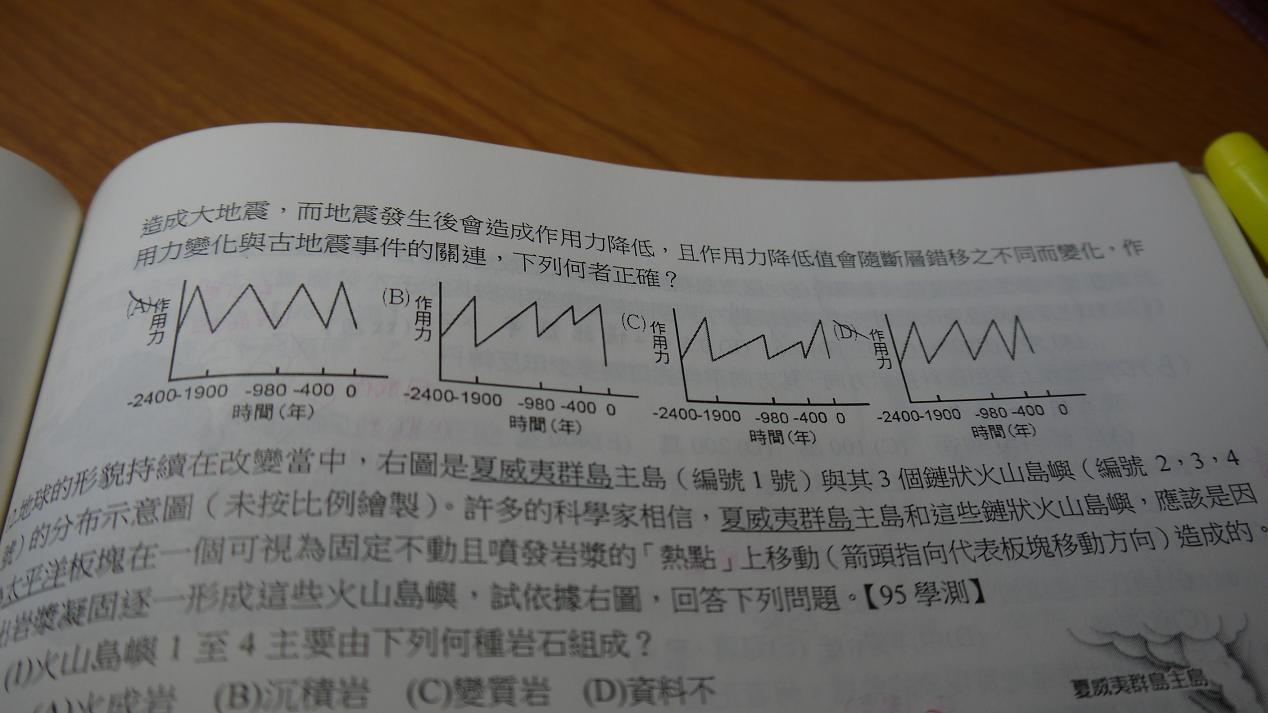 造成大地震，而地震發生後會造成作用力降低，且作用力降低值會隨斷層錯移之不同而變化，作
用力變化與古地震事件的關連，下列何者正確？
(A) 作用力 -2400 -1900 -980 -400 0 時間(年)
(B) 作用力 -2400 -1900 -980 -400 0 時間(年)
(C) 作用力 -2400 -1900 -980 -400 0 時間(年)
(D) 作用力 -2400 -1900 -980 -400 0 時間(年)
地球的形貌持續在改變當中，右圖是夏威夷群島主島（編號1號）與其3個鏈狀火山島嶼（編號 2，3，4
號）的分布示意圖（未按比例繪製）。許多的科學家相信，夏威夷群島主島和這些鏈狀火山島嶼，應該是因
太平洋板塊在一個可視為固定不動且噴發岩漿的「熱點」上移動（箭頭指向代表板塊移動方向）造成的。
岩漿凝固逐一形成這些火山島嶼，試依據右圖，回答下列問題。【95學測】
(1)火山島嶼1至4主要由下列何種岩石組成？
(A)火成岩 (B)沉積岩 (C)變質岩 (D)資料不
夏威夷群島主島